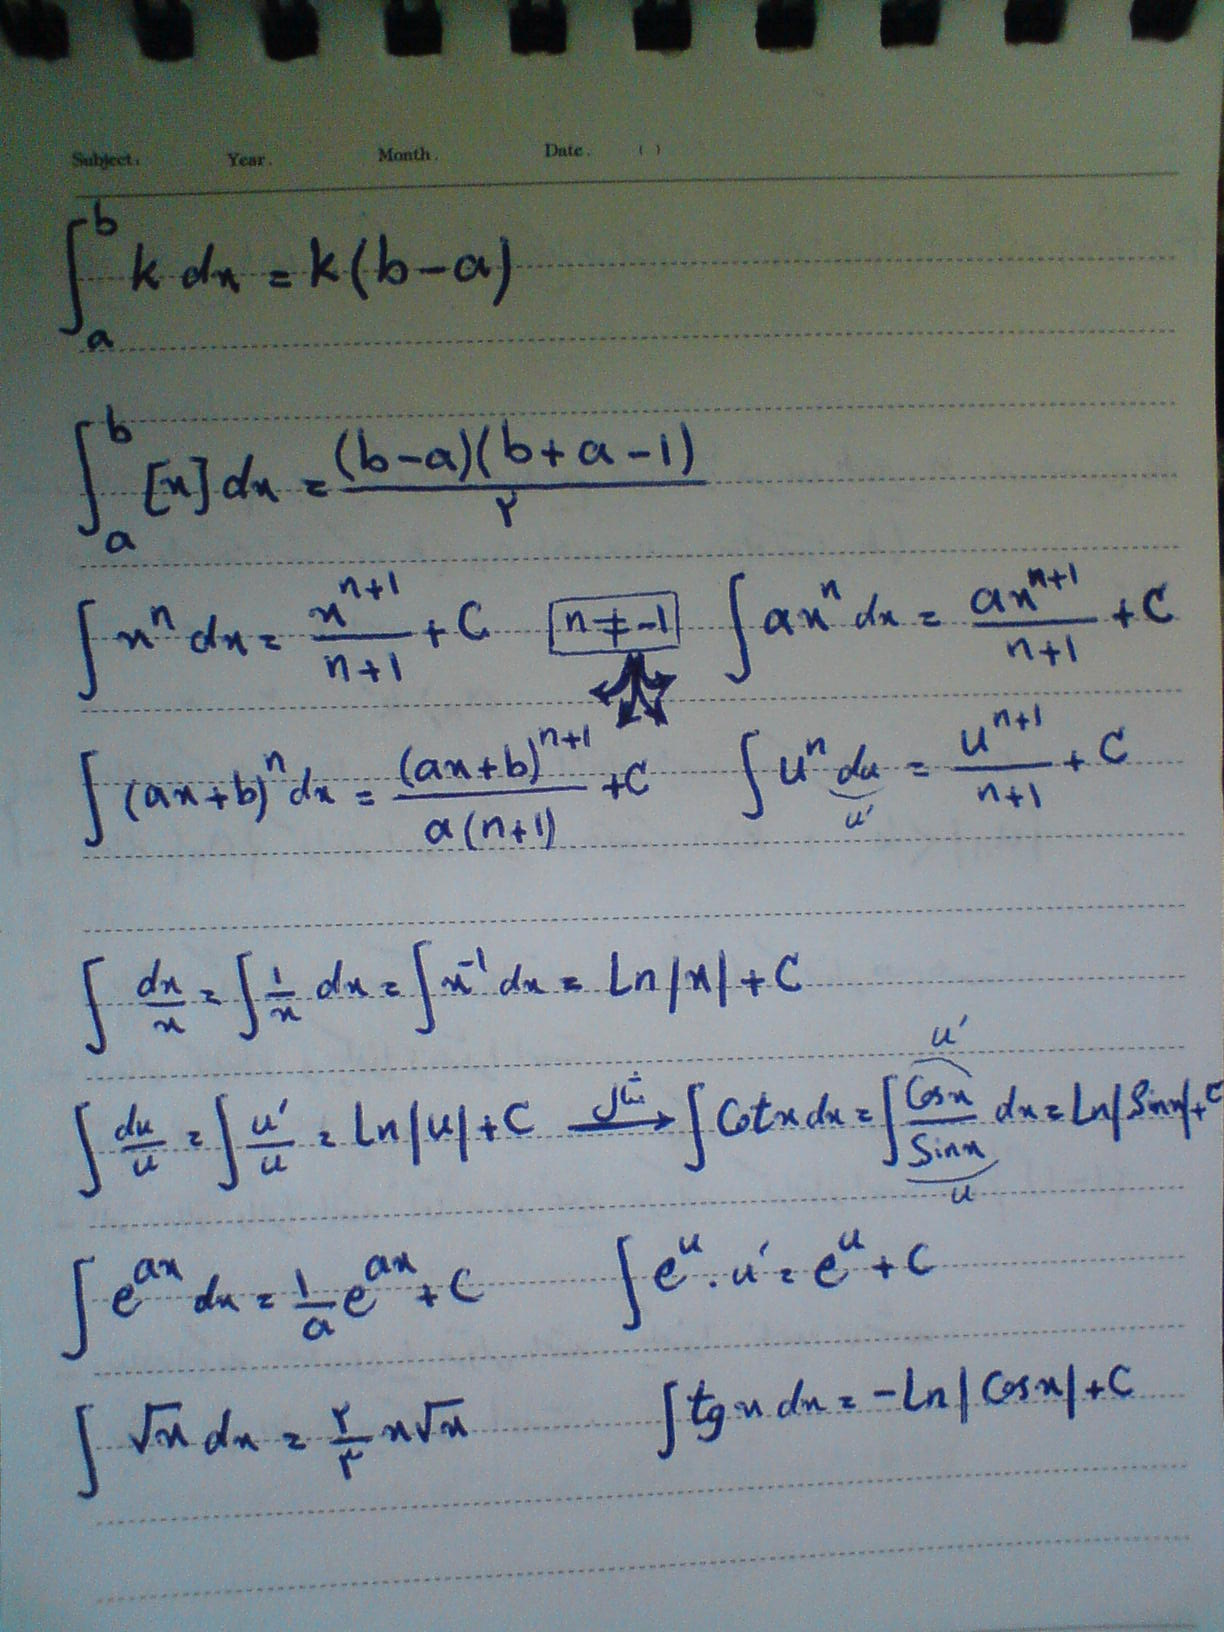 Subject. Year. Month. Date. ( )
∫_a^b k dx = k(b-a)
∫_a^b [x] dx = (b-a)(b+a-1)/۲
∫ x^n dx = x^(n+1)/(n+1) + C n ≠ -1 ∫ ax^n dx = ax^(n+1)/(n+1) + C
∫ (ax+b)^n dx = (ax+b)^(n+1)/a(n+1) + C ∫ u^n du = u^(n+1)/(n+1) + C
u'
∫ dx/x = ∫ 1/x dx = ∫ x^-1 dx = Ln|x| + C
u'
∫ du/u = ∫ u'/u = Ln|u| + C مثال → ∫ Cotx dx = ∫ Cosx/Sinx dx = Ln|Sinx| + C
u
∫ e^(ax) dx = 1/a e^(ax) + C ∫ e^u . u' = e^u + C
∫ √x dx = ۲/۳ x√x ∫ tg x dx = -Ln|Cosx| + C